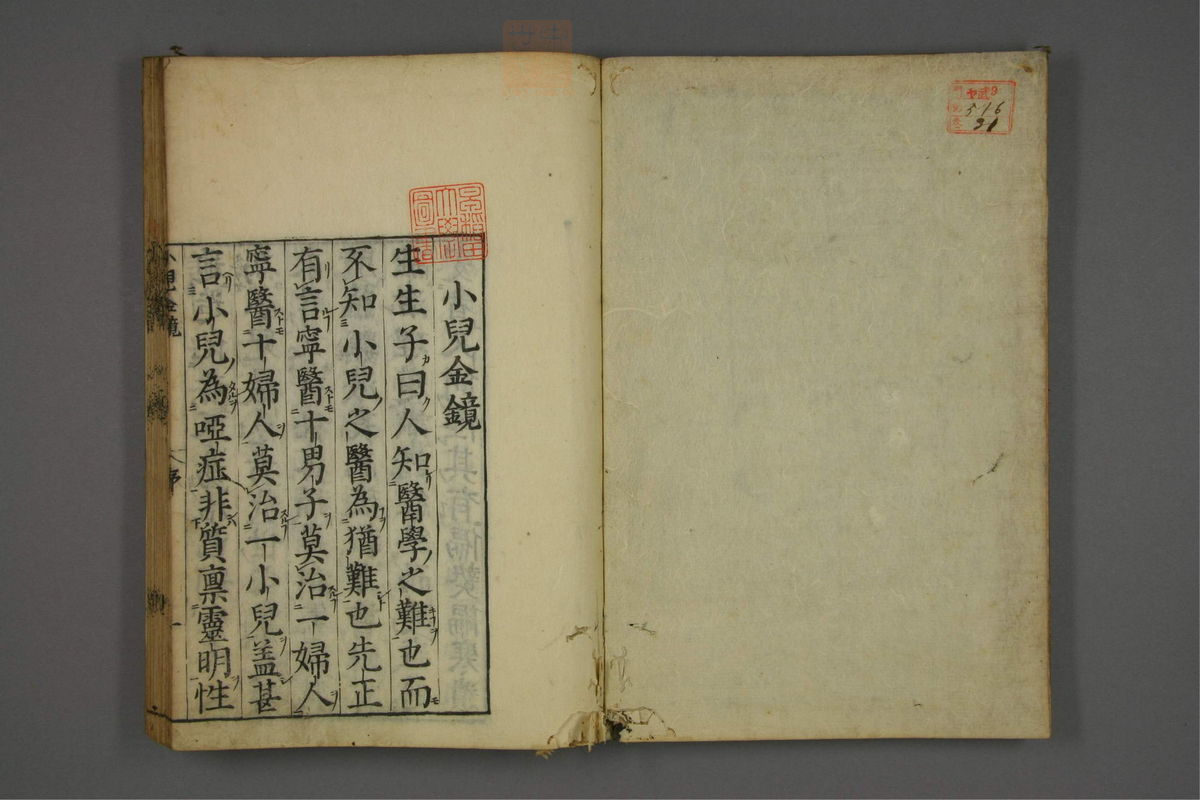 小兒金鏡
生生子曰人知醫學之難也而
不知小兒之醫為猶難也先正
有言寧醫十男子莫治一婦人
寧醫十婦人莫治一小兒蓋甚
言小兒為啞症非質禀靈明性
小兒金鏡
序
一
516
21